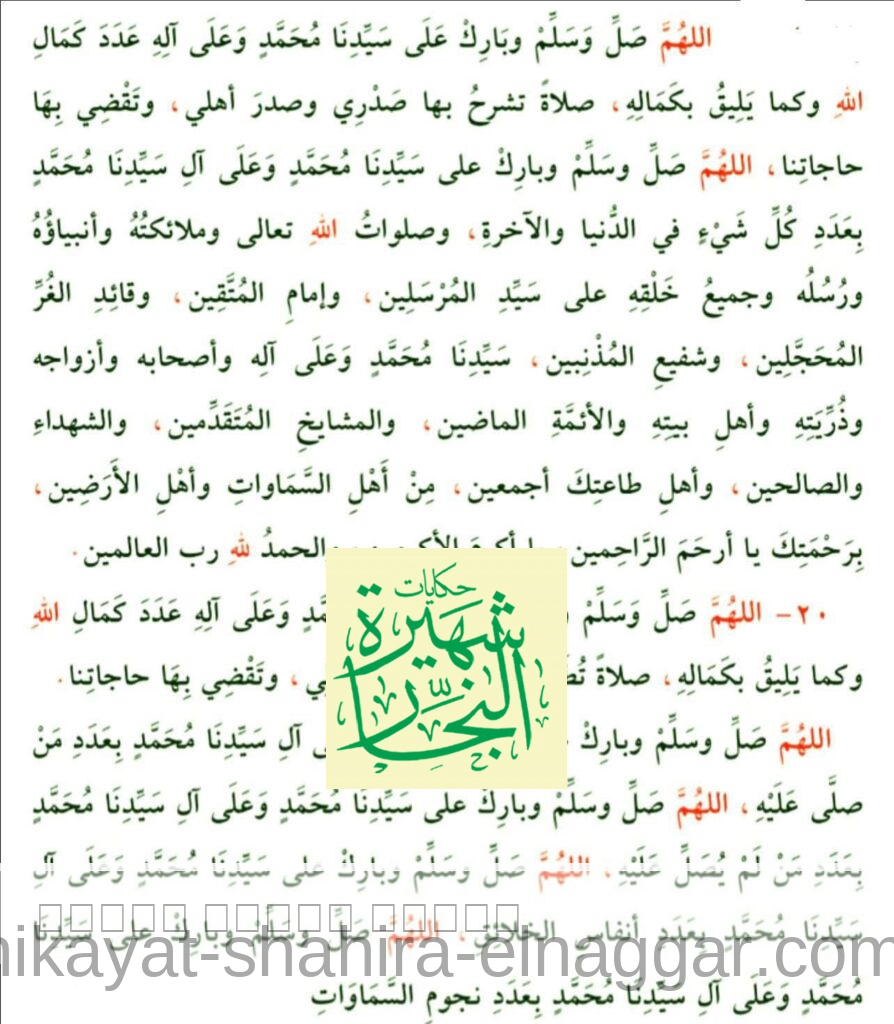 اللهُمَّ صَلِّ وَسَلِّمْ وبَارِكْ عَلَى سَيِّدِنَا مُحَمَّدٍ وَعَلَى آلِهِ عَدَدَ كَمَالِ
اللهِ وكما يَلِيقُ بكَمَالِهِ، صلاةً تشرحُ بها صَدْرِي وصدرَ أهلي، وتَقْضِي بِهَا
حاجاتِنا، اللهُمَّ صَلِّ وسَلِّمْ وبارِكْ على سَيِّدِنَا مُحَمَّدٍ وَعَلَى آلِ سَيِّدِنَا مُحَمَّدٍ
بِعَدَدِ كُلِّ شَيْءٍ في الدُّنيا والآخرةِ، وصلواتُ اللهِ تعالى وملائكتُهُ وأنبياؤُهُ
ورُسُلُه وجميعُ خَلْقِهِ على سَيِّدِ المُرْسَلِين، وإمامِ المُتَّقِين، وقائِدِ الغُرِّ
المُحَجَّلِين، وشفيعِ المُذْنِبين، سَيِّدِنَا مُحَمَّدٍ وَعَلَى آلِه وأصحابه وأزواجه
وذُرِّيَتِهِ وأهلِ بيتِهِ والأئمَّةِ الماضين، والمشايخِ المُتَقَدِّمين، والشهداءِ
والصالحين، وأهلِ طاعتِكَ أجمعين، مِنْ أَهْلِ السَّمَاواتِ وأهْلِ الأَرَضِين،
بِرَحْمَتِكَ يا أرحَمَ الرَّاحِمين والحمدُ للهِ رب العالمين.
٢٠- اللهُمَّ صَلِّ وَسَلِّمْ وَعَلَى آلِهِ عَدَدَ كَمَالِ اللهِ
وكما يَلِيقُ بكَمَالِهِ، صلاةً وتَقْضِي بِهَا حاجاتِنا.
اللهُمَّ صَلِّ وسَلِّمْ وبارِكْ آلِ سَيِّدِنَا مُحَمَّدٍ بِعَدَدِ مَنْ
صلَّى عَلَيْهِ، اللهُمَّ صَلِّ وسَلِّمْ وبارِكْ على سَيِّدِنَا مُحَمَّدٍ وَعَلَى آلِ سَيِّدِنَا مُحَمَّدٍ
بِعَدَدِ مَنْ لَمْ يُصَلِّ عَلَيْهِ، اللهُمَّ صَلِّ وسَلِّمْ وبارِكْ على سَيِّدِنَا مُحَمَّدٍ وَعَلَى آلِ
سَيِّدِنَا مُحَمَّدٍ بِعَدَدِ أنفاسِ الخلائِقِ، اللهُمَّ صَلِّ وسَلِّمْ وبارِكْ على سَيِّدِنَا
مُحَمَّدٍ وَعَلَى آلِ سَيِّدِنَا مُحَمَّدٍ بِعَدَدِ نجومِ السَّمَاوَاتِ
حكايات
شهيرة
النجار
hikayat-shahira-elnaggar.com